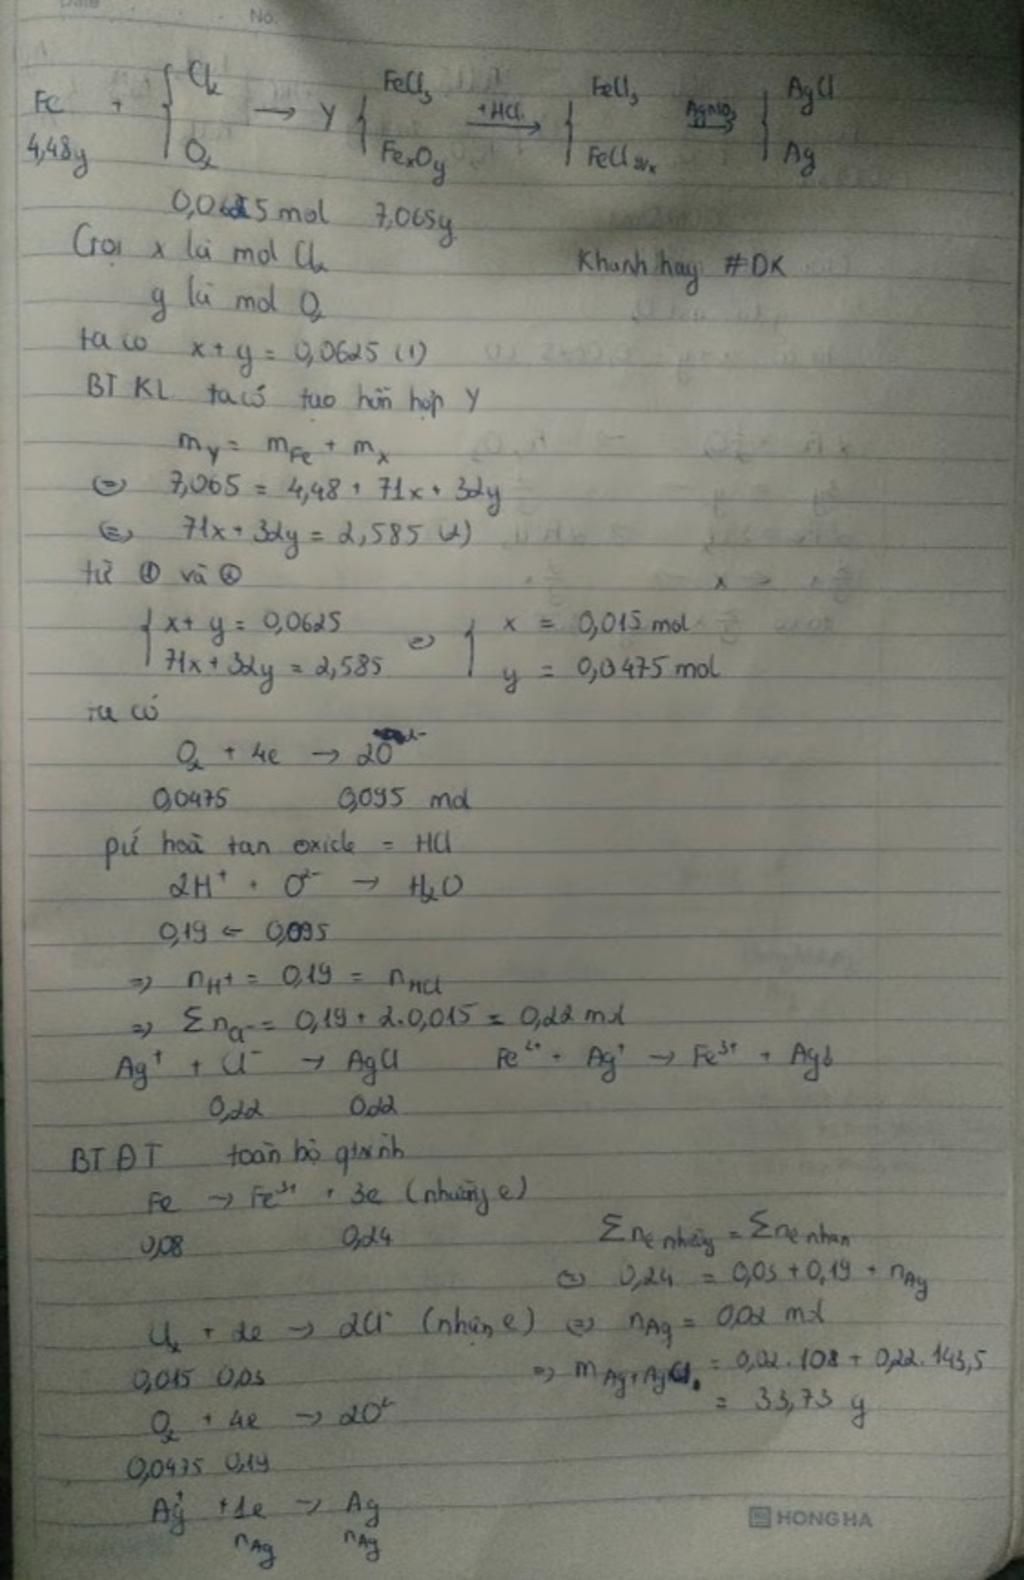 Date No.
Fe + { Cl₂ → Y { FeCl₃ +HCl → { FeCl₃ AgNO₃ → { AgCl
4,48g O₂ FexOy FeCl₂y/x Ag
0,0625 mol 7,065g
Gọi x là mol Cl₂ Khanh hay #DK
y là mol O₂
ta có x + y = 0,0625 (1)
BT KL ta có tạo hỗn hợp Y
mY = mFe + mx
⇔ 7,065 = 4,48 + 71x + 32y
⇔ 71x + 32y = 2,585 (2)
từ ① và ②
{ x + y = 0,0625 ⇔ { x = 0,015 mol
71x + 32y = 2,585 y = 0,0475 mol
ta có
O₂ + 4e → 2O²⁻
0,0475 0,095 mol
pứ hoà tan oxide = HCl
2H⁺ + O²⁻ → H₂O
0,19 ← 0,095
⇒ nH⁺ = 0,19 = nHCl
⇒ Σ nCl⁻ = 0,19 + 2.0,015 = 0,22 mol
Ag⁺ + Cl⁻ → AgCl Fe²⁺ + Ag⁺ → Fe³⁺ + Ag↓
0,22 0,22
BT ĐT toàn bộ qtrình
Fe → Fe³⁺ + 3e (nhường e)
0,08 0,24 Σ ne nhường = Σ ne nhận
⇔ 0,24 = 0,03 + 0,19 + nAg
Cl₂ + 2e → 2Cl⁻ (nhận e) ⇔ nAg = 0,02 mol
0,015 0,03 ⇒ m Ag + AgCl = 0,02.108 + 0,22.143,5
O₂ + 4e → 2O²⁻ = 33,73 g
0,0475 0,19
Ag⁺ +1e → Ag
nAg nAg
HONG HA